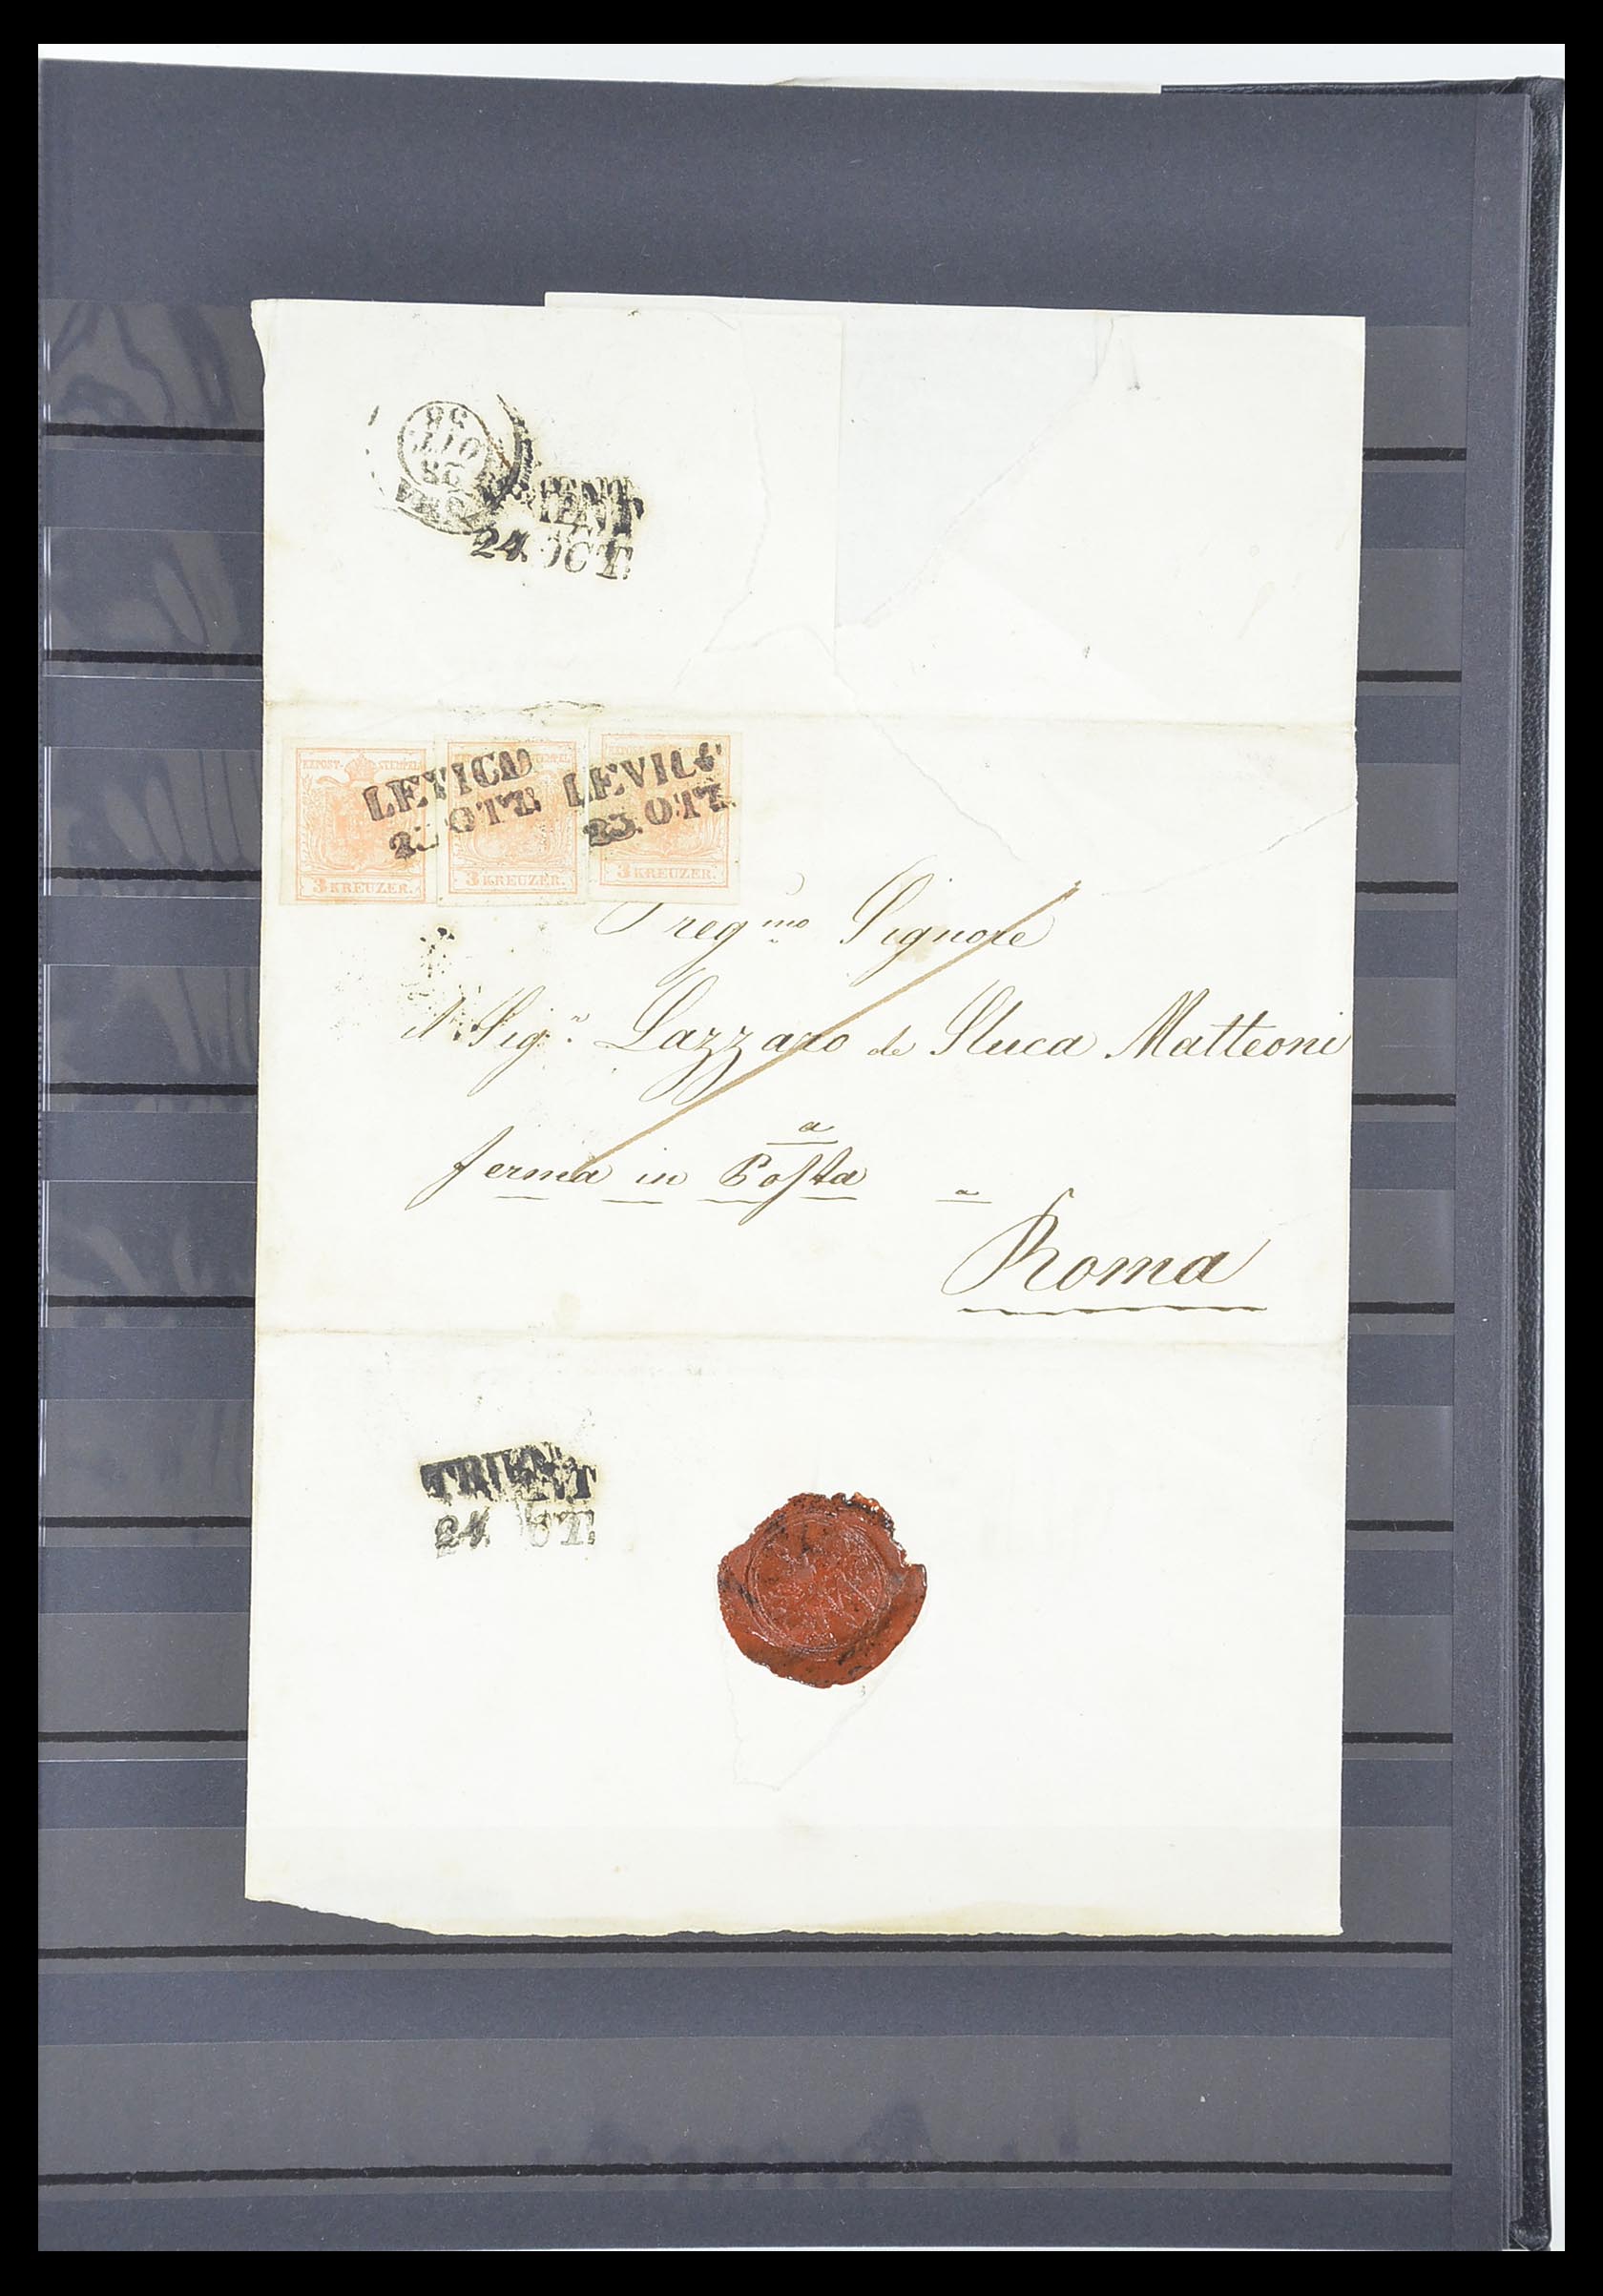 58
OTT.
28
TRIENT
24. OCT.
KKPOST-STEMPEL
LEVICO
23. OTT.
LEVICO
23. OTT.
3 KREUZER.
3 KREUZER.
3 KREUZER.
Pregmo Signore
il Sigr. Lazzaro de Sluca Matteoni
a
ferma in Posta a
Roma
TRIENT
24. OCT.